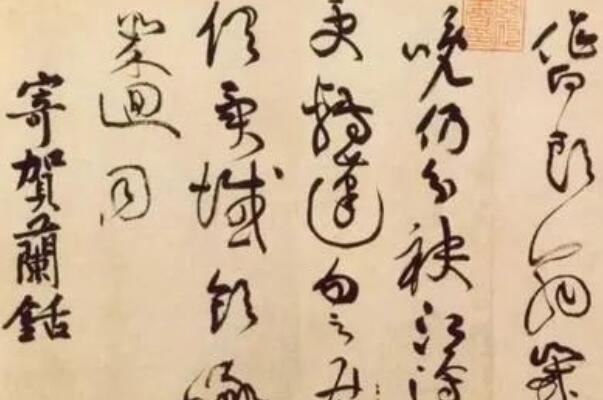 作白頭翁歲
晚仍分袂江邊
更轉蓬勿言
俱異域飲啄
幾迴同
寄賀蘭銛